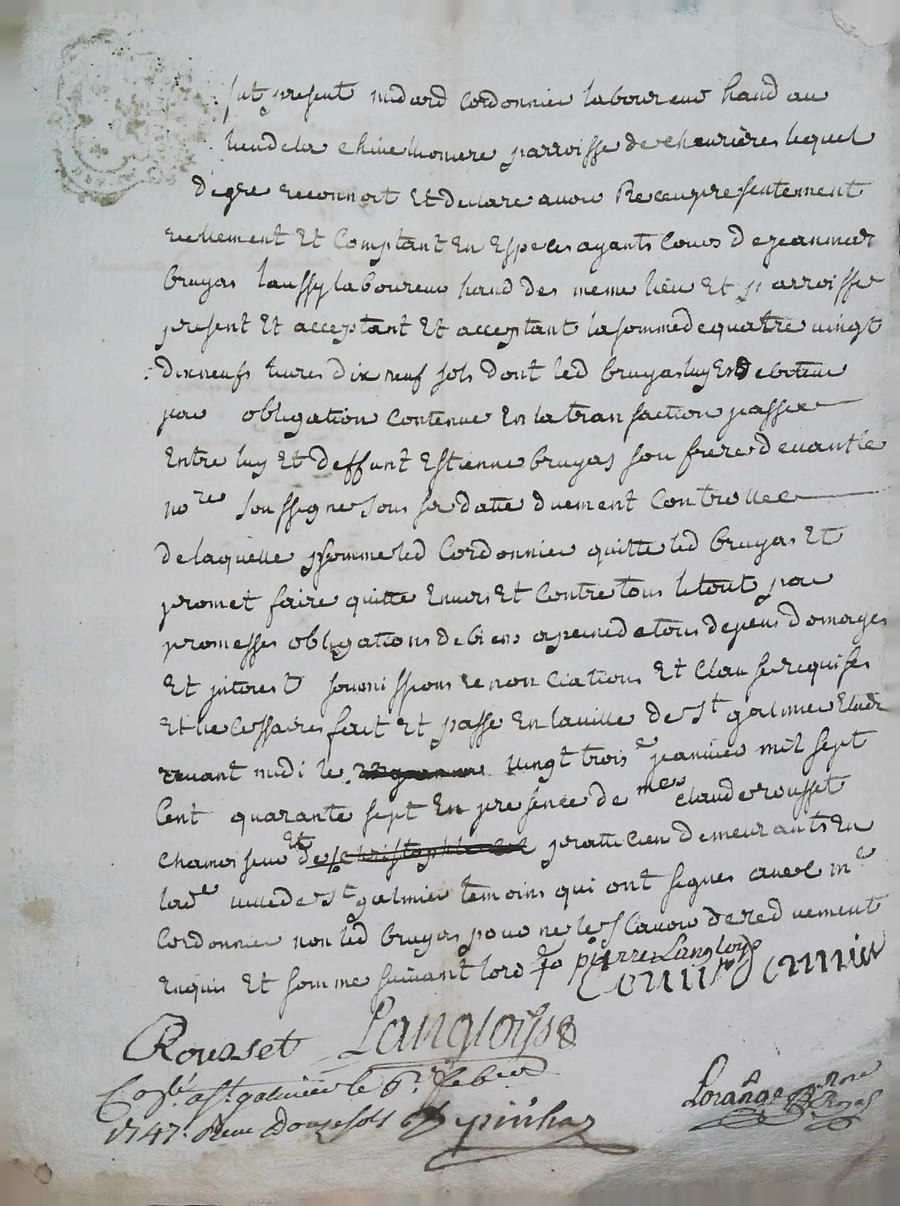 fut present midard Cordonnier laboureur habitant au
lieu de la parroisse de chevrières lequel
de gre reconnoit Et declare avoir Receu presentement
reellement Et Comptant En Especes ayants Cours de jean mar
bruyas laussy laboureur des meme lieu Et parroisse
present Et acceptant Et acceptant la somme de quatre vingt
dix neufs livres dix neuf sols dont led bruyas luy Est debiteur
par obligation Contenue En la transaction passee
Entre luy Et deffunt Estienne bruyas son frere devant le
nore soussigne sous sa datte duement Controllee
de laquelle somme led Cordonnier quitte led bruyas Et
promet faire quitte Envers Et Contre tous le tout par
promesses obligations de biens a peine de tous depens domages
Et jnterest soumissions renonciations Et Clauses requises
Et necessaires fait Et passe En la ville de St galmier Etude
avant midi le vingt trois e jeanvier mil sept
Cent quarante sept En presence de mes claude rousset
chamoiseur Et de praticien demeurants En
lade ville de St galmier temoins qui ont signes avec me
Cordonnier non led bruyas pour ne les scavoir de ce duement
Enquis Et somme suivant lord pierre Langlois
Cordonnier
Rousset Langlois
Coslé a St galmier le 6e febvr
1747. Reçu douze sols Epinhaz
Lorange nore Royal